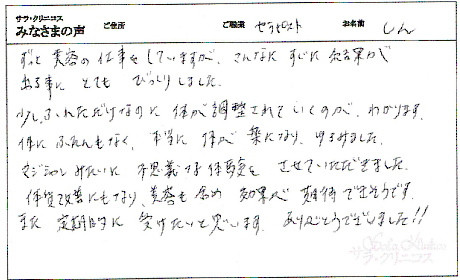 サラ・クリニコス
みなさまの声 ご住所 ご職業 セラピスト お名前 しん
ずっと美容の仕事をしていますが、こんなにすぐに結果が
出る事にとてもびっくりしました。
少しふれただけなのに体が調整されていくのが、わかります。
体にふたんもなく、本当に体が楽になり、ゆるみました。
マジシャンみたいに不思議な体験をさせていただきました。
体質改善にもなり、美容も含め効果が期待できそうです。
また定期的に受けたいと思います。ありがとうございました!!
サラ・クリニコス